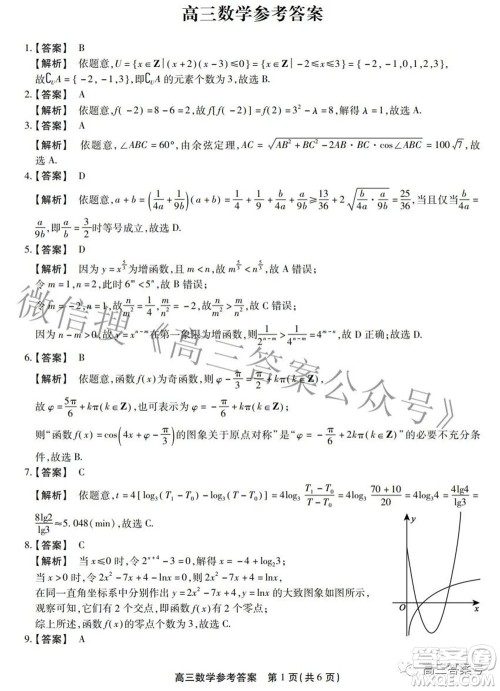 高三数学参考答案
1.【答案】 B
【解析】 依题意,U={x∈Z|(x+2)(x-3)≤0}={x∈Z|-2≤x≤3}={-2,-1,0,1,2,3},
故∁UA={-2,-1,3},即∁UA 的元素个数为 3,故选 B.
2.【答案】 A
【解析】 依题意,f(-2)=8-6=2,故 f[f(-2)]=f(2)=3²-λ=8,解得 λ=1,故选 A.
3.【答案】 A
【解析】 依题意,∠ABC=60°,由余弦定理,AC=√(AB²+BC²-2AB·BC·cos∠ABC)=100√7,故
选 A.
4.【答案】 D
【解析】 依题意,a+b=(1/4a+1/9b)(a+b)=1/4+1/9+b/4a+a/9b≥13/36+2√(b/4a·a/9b)=25/36,当且仅当 b/4a=
a/9b,即 b/a=3/2 时等号成立,故选 D.
5.【答案】 D
【解析】 因为 y= 为增函数,且 m<n,故 ,故 A 错误;
令 m=1,n=2,此时 6ᵐ<5ⁿ,故 B 错误;
令 m=-2,n=1,故 n/m²=1/4,m/n²=-2,故 n/m²>m/n²,故 C 错误;
因为 n-m>0,故 y=xⁿ⁻ᵐ 在第一象限为增函数,故 1/2ⁿ⁻ᵐ>1/4ⁿ⁻ᵐ=4ᵐ⁻ⁿ,故 D 正确;故选 D.
6.【答案】 B
【解析】 依题意,函数 f(x) 为奇函数,则 φ-π/3=π/2+kπ(k∈Z),
故 φ=5π/6+kπ(k∈Z),即 φ=-π/6+kπ(k∈Z),
则“函数 f(x)=cos(4x+φ-π/3)的图象关于原点对称”是“φ=-π/6+2kπ(k∈Z)”的必要不充分条
件,故选 B.
7.【答案】 C
【解析】 依题意,t=4[log₃(T₁-T₀)-log₃(T-T₀)]=4log₃ (T₁-T₀)/(T-T₀)=4log₃ (70+10)/20=4log₃4=4lg4/lg3=
8lg2/lg3≈5.048(min),故选 C.
8.【答案】 C
【解析】 当 x≤0 时,令 2ˣ⁺⁴-3=0,解得
当 x>0 时,令 2x²-7x+4-lnx=0,则 2x²-7x+4=lnx,
在同一直角坐标系中分别作出 y=2x²-7x+4,y=lnx 的大致图象如图所示,
观察可知,它们有 2 个交点,即函数 f(x) 有 2 个零点;
综上所述,函数 f(x) 的零点个数为 3,故选 C.
9.【答案】 A
O
x
高三数学参考答案 第 1 页(共 6 页)
微信搜《高三答案公众号》
高三答案号